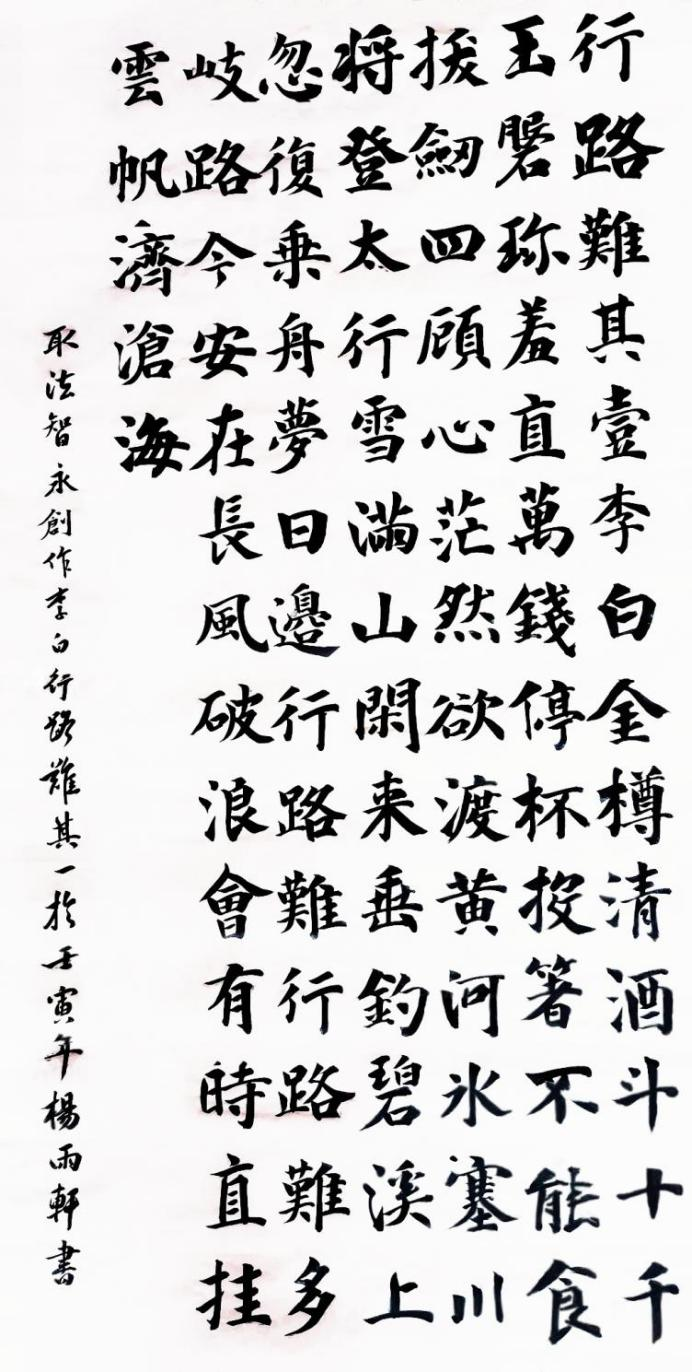 行路難其壹李白金樽清酒斗十千
玉磐珎羞直萬錢停杯投箸不能食
拔劔四顧心茫然欲渡黄河氷塞川
将登太行雪滿山閑来垂釣碧溪上
忽復乗舟夢日邊行路難行路難多
岐路今安在長風破浪會有時直挂
雲帆濟滄海
取法智永創作李白行路難其一於壬寅年楊雨軒書